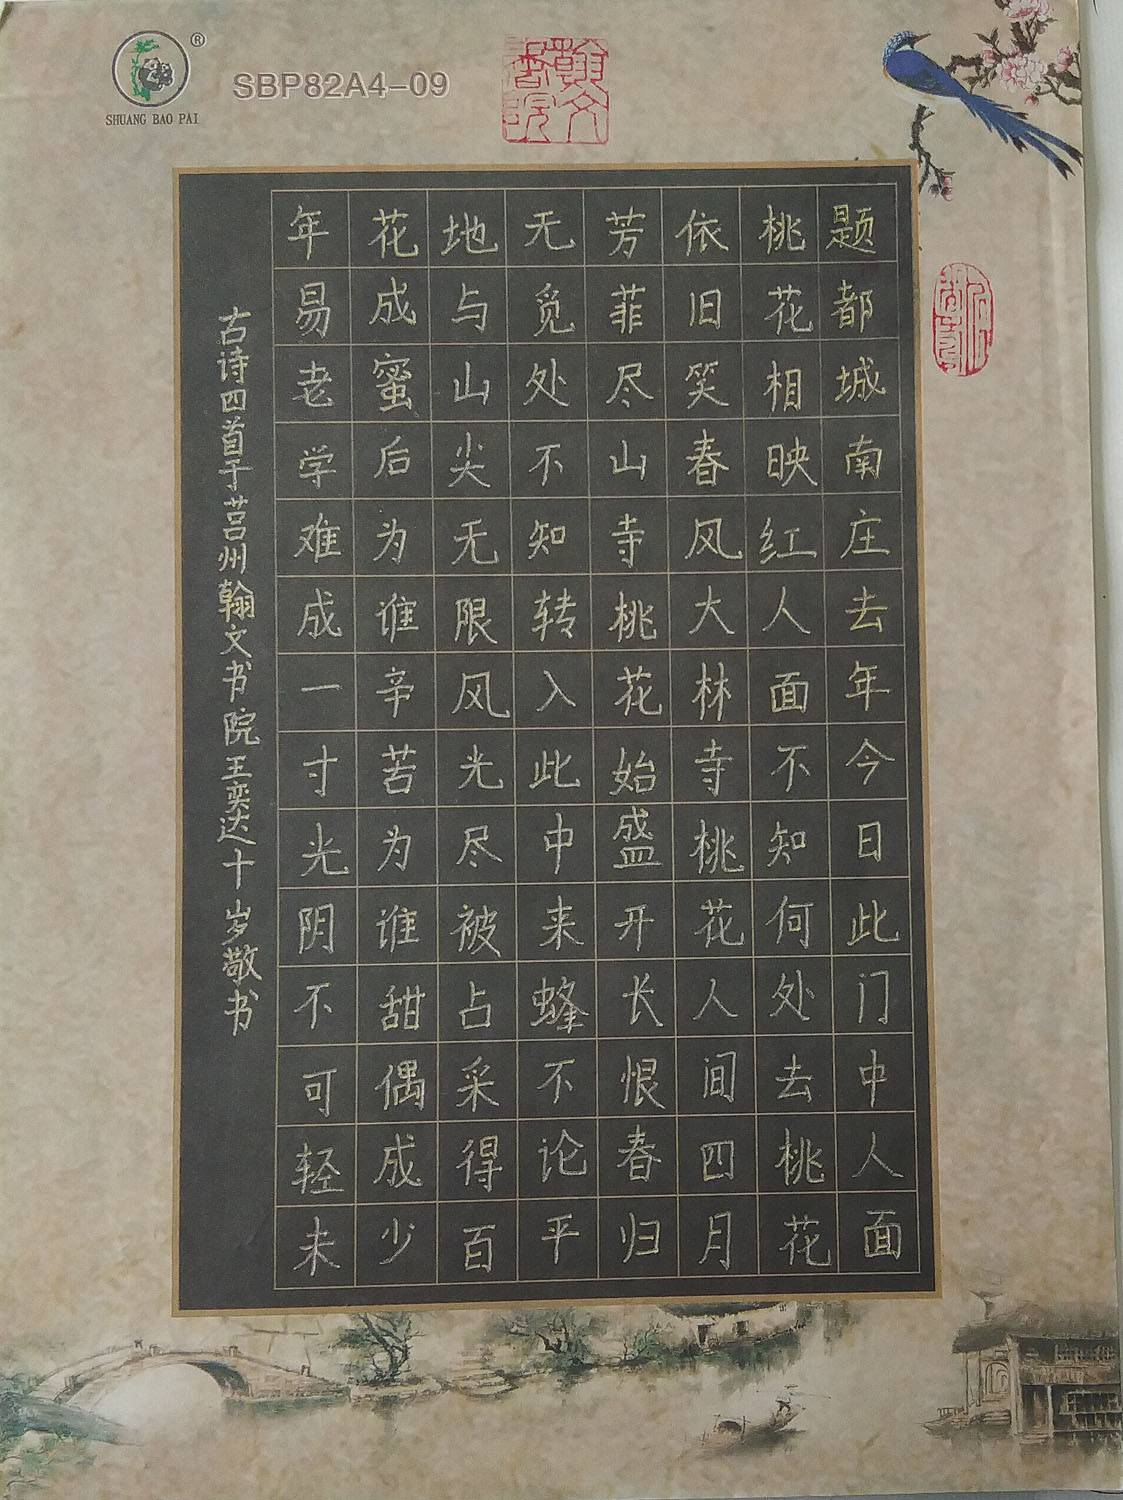 SHUANG BAO PAI
®
SBP82A4-09
翰文书院
题都城南庄去年今日此门中人面
桃花相映红人面不知何处去桃花
依旧笑春风大林寺桃花人间四月
芳菲尽山寺桃花始盛开长恨春归
无觅处不知转入此中来蜂不论平
地与山尖无限风光尽被占采得百
花成蜜后为谁辛苦为谁甜偶成少
年易老学难成一寸光阴不可轻未
古诗四首于莒州翰文书院王奕达十岁敬书